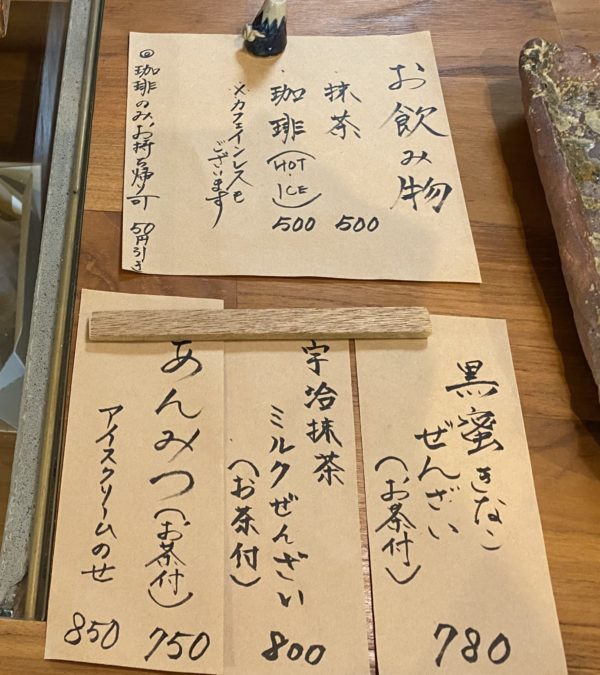 お飲み物
抹茶 500
珈琲(HOT・ICE) 500
※カフェインレスも
ございます
◎珈琲のみ、お持ち帰り可 50円引き
黒蜜きなこ
ぜんざい
(お茶付)
780
宇治抹茶
ミルクぜんざい
(お茶付)
800
あんみつ(お茶付) 750
アイスクリームのせ 850